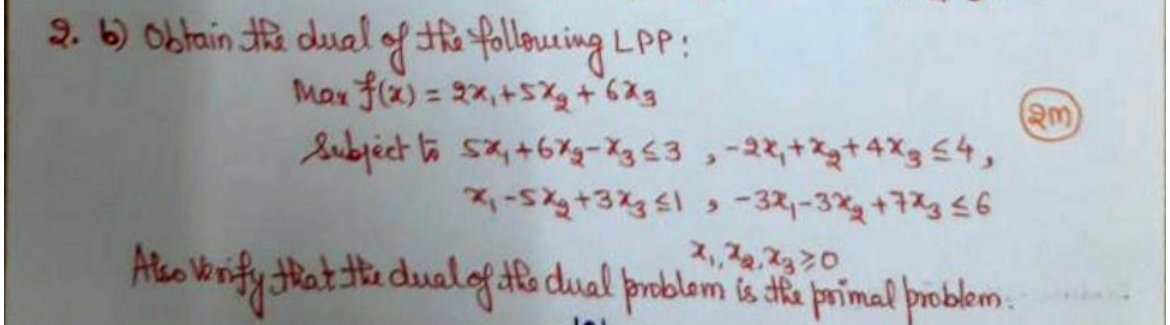 2. b) Obtain the dual of the following LPP:
Max f(x) = 2x₁ + 5x₂ + 6x₃
Subject to 5x₁ + 6x₂ - x₃ ≤ 3 , -2x₁ + x₂ + 4x₃ ≤ 4 ,
2m
x₁ - 5x₂ + 3x₃ ≤ 1 , -3x₁ - 3x₂ + 7x₃ ≤ 6
x₁, x₂, x₃ ≥ 0
Also Verify that the dual of the dual problem is the primal problem.